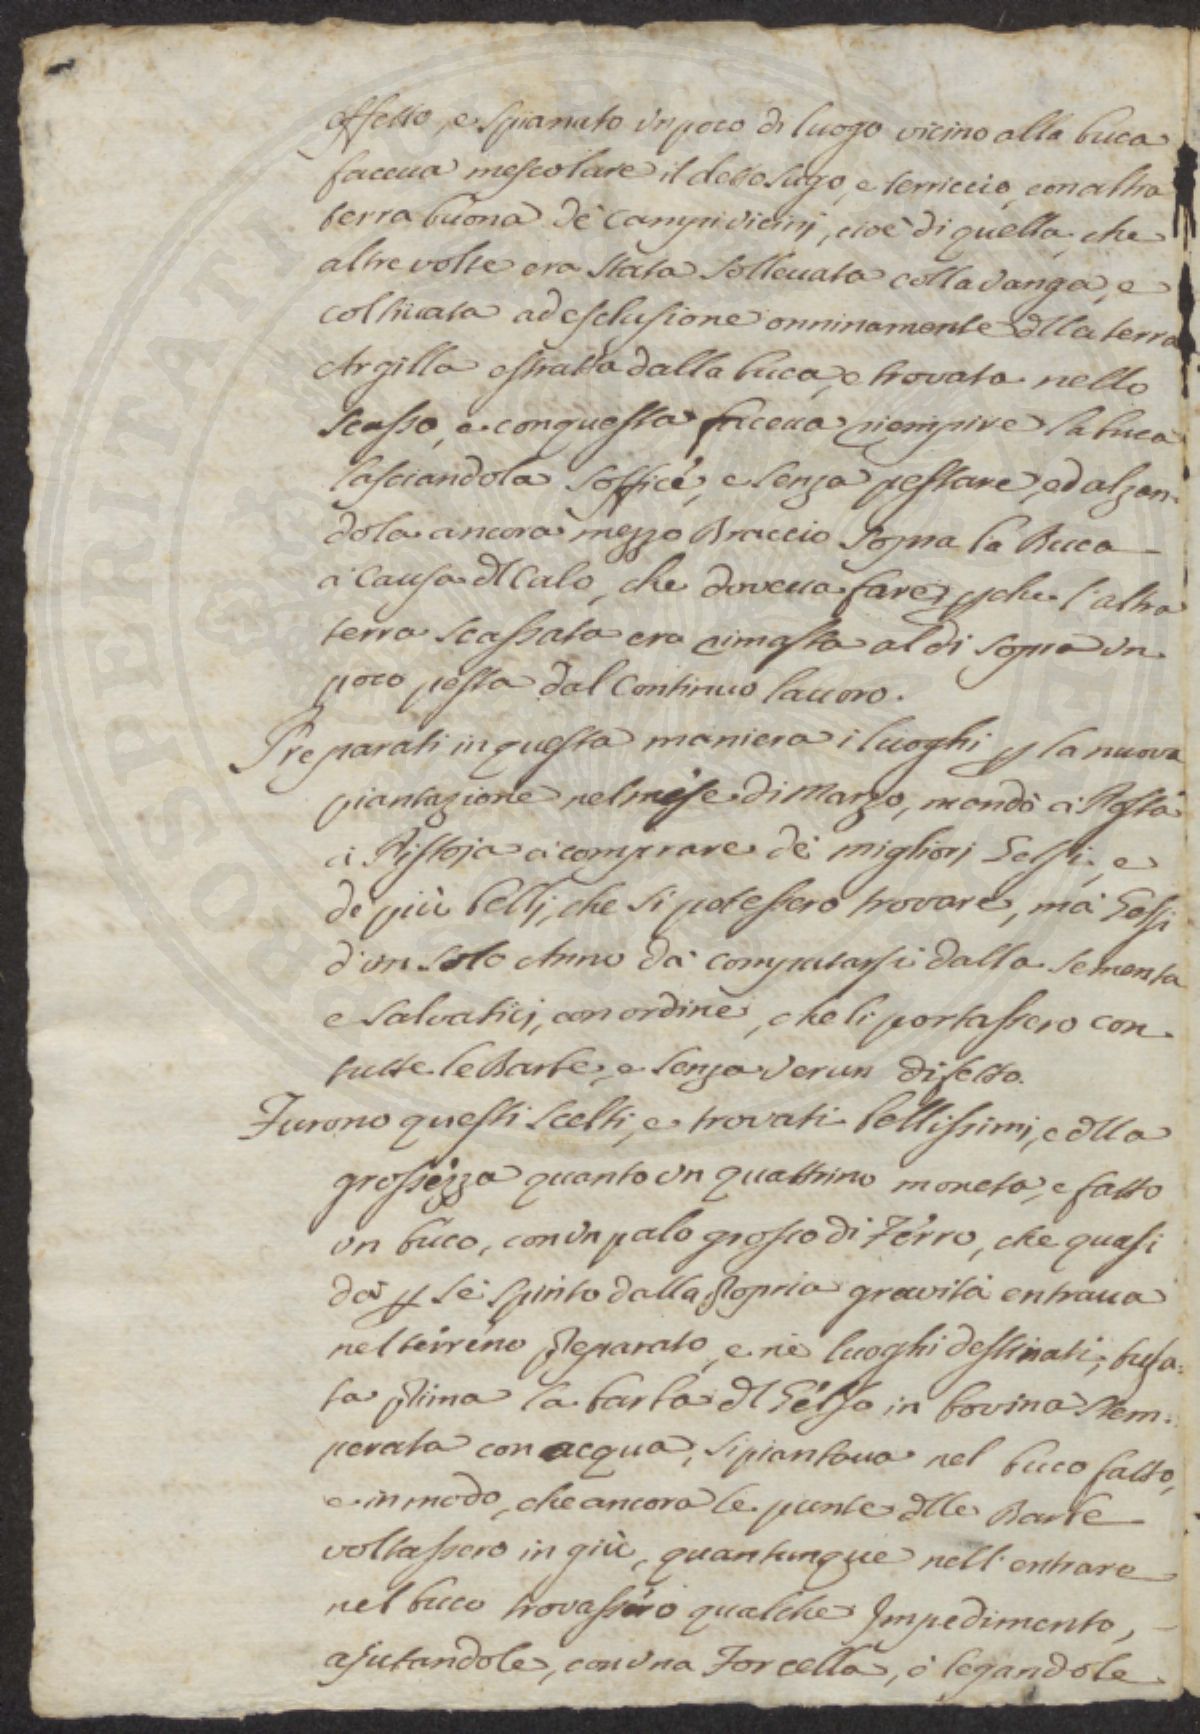 effetto, e spianato vn poco di luogo vicino alla buca
faceua mescolare il detto sugo, e terriccio, con altra
terra buona de' Campi vicinj, cioè di quella, che
altre volte era stata solleuata colla vanga, e
coltiuata ad esclusione onninamente dlla terra
Argilla estratta dalla buca, e trovata nello
scasso, e con questa faceua riempire la buca
lasciandola soffice, e senza pestare, ed alzan-
dola ancora mezzo Braccio sopra la Buca
à Causa dl Calo, che doveua fare, pche l'altra
terra scassata era rimasta al di sopra vn
poco pesta dal Continuo lauoro.
Preparati in questa maniera i luoghi p la nuova
piantazione nel mese di Marzo, mandò à Posta
à Pistoja à comprare de' migliorj Gelsi, e
de più bellj, che si potessero trovare, mà Gelsi
d'vn solo Anno dà computarsi dalla sementa
e salvaticj, con ordine, che li portassero con
tutte le Barbe, e senza verun difetto.
Furono questi scelti, e trovati bellissimi, e dlla
grossezza quanto vn quattrino moneta, e fatto
vn buco, con vn palo grosso di Ferro, che quasi
dà p sè spinto dalla propria gravità entraua
nel terreno preparato, e ne' luoghi destinati, tuffa-
ta prima la barba dl Gelso in bovina stem-
perata con acqua, si piantaua nel buco fatto,
e in modo, che ancora le punte dlle Barbe
voltassero in giù, quantunque nell'entrare
nel buco trovassero qualche Impedimento,
ajutandole, con vna Forcella, ò legandole